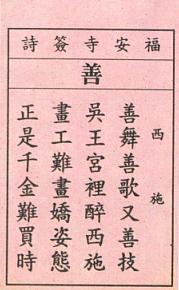 福安寺簽詩
善
西施
善舞善歌又善技
吳王宮裡醉西施
畫工難畫嬌姿態
正是千金難買時